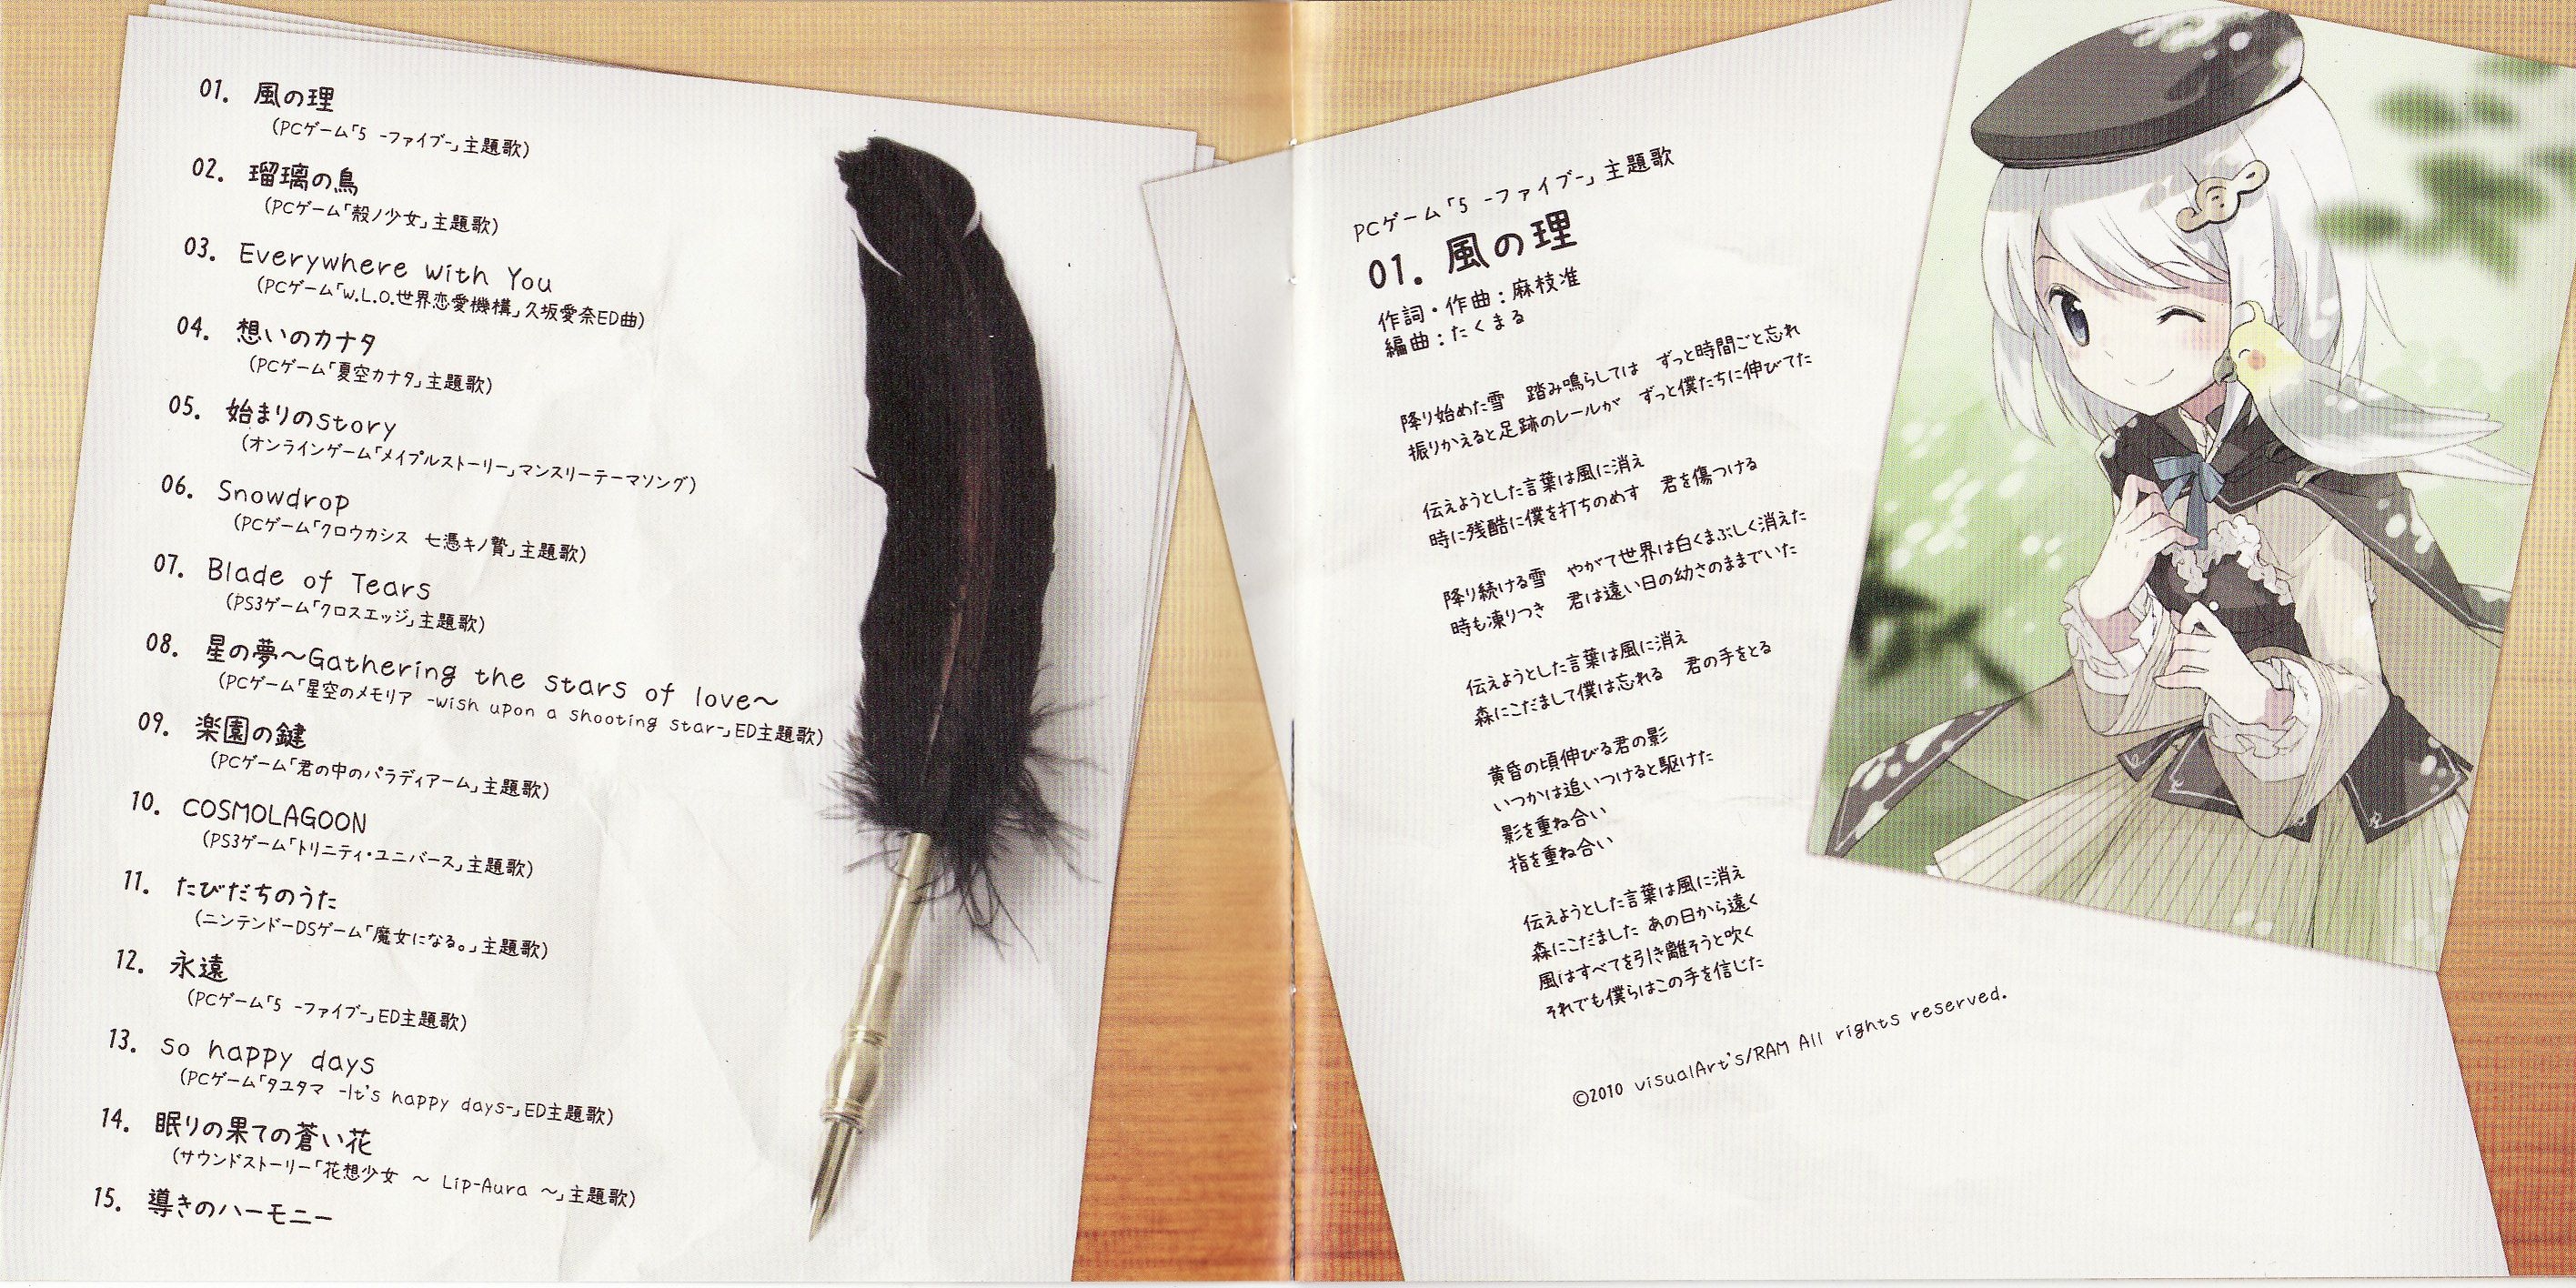 01. 風の理
(PCゲーム「5 -ファイブ-」主題歌)
02. 瑠璃の鳥
(PCゲーム「殻ノ少女」主題歌)
03. Everywhere with You
(PCゲーム「W.L.O.世界恋愛機構」久坂愛奈ED曲)
04. 想いのカナタ
(PCゲーム「夏空カナタ」主題歌)
05. 始まりのstory
(オンラインゲーム「メイプルストーリー」マンスリーテーマソング)
06. Snowdrop
(PCゲーム「クロウカシス 七憑キノ贄」主題歌)
07. Blade of Tears
(PS3ゲーム「クロスエッジ」主題歌)
08. 星の夢〜Gathering the stars of love〜
(PCゲーム「星空のメモリア -wish upon a shooting star-」ED主題歌)
09. 楽園の鍵
(PCゲーム「君の中のパラディアーム」主題歌)
10. COSMOLAGOON
(PS3ゲーム「トリニティ・ユニバース」主題歌)
11. たびだちのうた
(ニンテンドーDSゲーム「魔女になる。」主題歌)
12. 永遠
(PCゲーム「5 -ファイブ-」ED主題歌)
13. so happy days
(PCゲーム「タユタマ -It's happy days-」ED主題歌)
14. 眠りの果ての蒼い花
(サウンドストーリー「花想少女 〜 Lip-Aura 〜」主題歌)
15. 導きのハーモニー
PCゲーム「5 -ファイブ-」主題歌
01. 風の理
作詞・作曲:麻枝准
編曲:たくまる
降り始めた雪 踏み鳴らしては ずっと時間ごと忘れ
振りかえると足跡のレールが ずっと僕たちに伸びてた
伝えようとした言葉は風に消え
時に残酷に僕を打ちのめす 君を傷つける
降り続ける雪 やがて世界は白くまぶしく消えた
時も凍りつき 君は遠い日の幼さのままでいた
伝えようとした言葉は風に消え
森にこだまして僕は忘れる 君の手をとる
黄昏の頃伸びる君の影
いつかは追いつけると駆けた
影を重ね合い
指を重ね合い
伝えようとした言葉は風に消え
森にこだました あの日から遠く
風はすべてを引き離そうと吹く
それでも僕らはこの手を信じた
©2010 visualArt's/RAM All rights reserved.